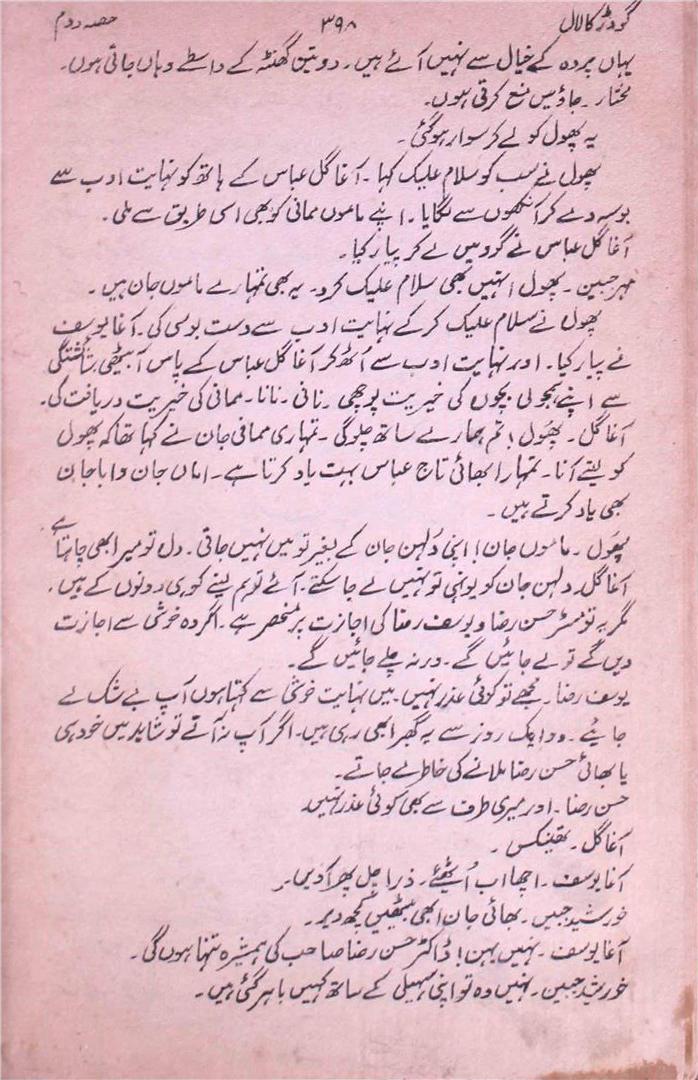 گودڑ کا لال ۳۹۸ حصہ دوم
یہاں پردہ کے خیال سے نہیں آئے ہیں۔ دو تین گھنٹہ کے واسطے وہاں جاتی ہوں۔
مختار۔ جاؤ میں منع کرتی ہوں۔
یہ پھول کو لے کر سوار ہو گئی۔
پھول نے سب کو سلام علیک کہا۔ آغا گل عباس کے ہاتھ کو نہایت ادب سے
بوسہ دے کر آنکھوں سے لگایا۔ اپنے ماموں ممانی کو بھی اسی طریق سے ملی۔
آغا گل عباس نے گود میں لے کر پیار کیا۔
مہر جبین۔ پھول! انہیں بھی سلام علیک کرو۔ یہ بھی تمہارے ماموں جان ہیں۔
پھول نے سلام علیک کر کے نہایت ادب سے دست بوسی کی۔ آغا یوسف
نے پیار کیا۔ اور نہایت ادب سے اُٹھ کر آغا گل عباس کے پاس آ بیٹھی۔ شائستگی
سے اپنے ہمجولی بچوں کی خیریت پوچھی۔ نانی۔ نانا۔ ممانی کی خیریت دریافت کی۔
آغا گل۔ پھول! تم ہمارے ساتھ چلو گی۔ تمہاری ممانی جان نے کہا تھا کہ پھول
کو لیتے آنا۔ تمہارا بھائی تاج عباس بہت یاد کرتا ہے۔ اماں جان و ابا جان
بھی یاد کرتے ہیں۔
پھول۔ ماموں جان! اپنی دُلہن جان کے بغیر تو میں نہیں جاتی۔ دل تو میرا بھی چاہتا ہے
آغا گل۔ دلہن جان کو یونہی تو نہیں لے جا سکتے۔ آئے تو ہم لینے کو ہی دونوں کے ہیں۔
مگر یہ تو مسٹر حسن رضا و یوسف رضا کی اجازت پر منحصر ہے۔ اگر وہ خوشی سے اجازت
دیں گے تو لے جائیں گے۔ ورنہ چلے جائیں گے۔
یوسف رضا۔ مجھے تو کوئی عذر نہیں۔ میں نہایت خوشی سے کہتا ہوں آپ بے شک لے
جائیے۔ دو ایک روز سے یہ گھبرا بھی رہی ہیں۔ اگر آپ نہ آتے تو شاید میں خود ہی
یا بھائی حسن رضا ملانے کی خاطر لے جاتے۔
حسن رضا۔ اور میری طرف سے بھی کوئی عذر نہیں۔
آغا گل۔ تھینکس۔
آغا یوسف۔ اچھا اب اُٹھئے۔ ذرا چل پھر آئیں۔
خورشید جبیں۔ بھائی جان ابھی بیٹھیں کچھ دیر۔
آغا یوسف۔ نہیں بہن! ڈاکٹر حسن رضا صاحب کی ہمشیرہ تنہا ہوں گی۔
خورشید جبین۔ نہیں وہ تو اپنی سہیلی کے ساتھ کہیں باہر گئی ہیں۔